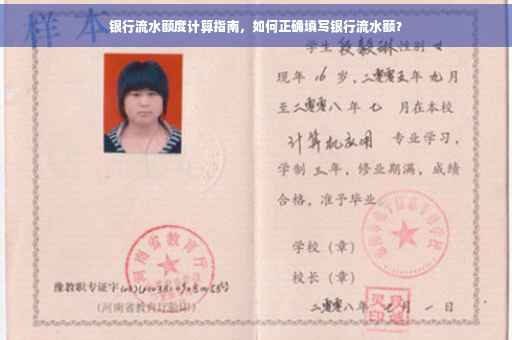 银行流水额度计算指南，如何正确填写银行流水额？
样本
学生 段毅琳 性别 女
现年 16 岁，二零零五年 九月
至二零零八年 七 月在本校
计算机应用 专业学习，
学制 三年，修业期满，成绩
合格，准予毕业。
学校（章）
校长（章）
二零零八年 月 一 日
河南省教育厅
豫教职专证字
（河南省教育厅验印）